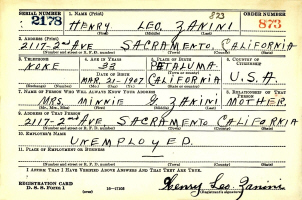 SERIAL NUMBER 1. NAME (Print) ORDER NUMBER
2178 HENRY LEO ZANINI 873
873
(First) (Middle) (Last)
2. ADDRESS (Print)
2117-2nd AVE SACRAMENTO CALIFORNIA
(Number and street or R. F. D. number) (Town) (County) (State)
3. TELEPHONE 4. AGE IN YEARS 5. PLACE OF BIRTH 6. COUNTRY OF CITIZENSHIP
NONE 33 PETALUMA
DATE OF BIRTH
MAR-21-1907 CALIFORNIA U.S.A.
(Exchange) (Number) (Mo.) (Day) (Yr.) (State or country)
7. NAME OF PERSON WHO WILL ALWAYS KNOW YOUR ADDRESS 8. RELATIONSHIP OF THAT PERSON
MRS. MINNIE G ZANINI MOTHER
(Mr., Mrs., Miss) (First) (Middle) (Last)
9. ADDRESS OF THAT PERSON
2117-2nd AVE SACRAMENTO CALIFORNIA
(Number and street or R. F. D. number) (Town) (County) (State)
10. EMPLOYER'S NAME
UNEMPLOYED
11. PLACE OF EMPLOYMENT OR BUSINESS
(Number and street or R. F. D. number) (Town) (County) (State)
I AFFIRM THAT I HAVE VERIFIED ABOVE ANSWERS AND THAT THEY ARE TRUE.
REGISTRATION CARD
D. S. S. Form 1 16-17105 Henry Leo Zanini
(Registrant's signature)